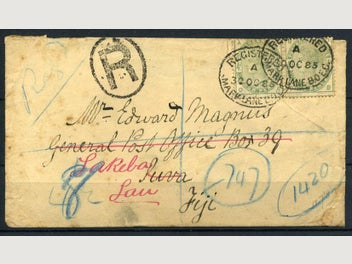 REGISTERED
A
30 OC 85
MARK LANE B.O. E.C.
REGISTERED
A
30 OC 85
MARK LANE B.O. E.C.
R
Mr. Edward Magnus
General Post Office Box 39
Lakeba
Suva
Lau
Fiji
747
1420